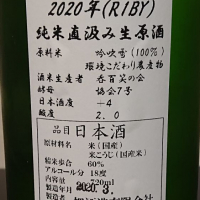 2020年(R1BY)
純米直汲み生原酒
原料米 吟吹雪(100%)
環境こだわり農産物
酒米生産者 呑百笑の会
酵母 協会7号
日本酒度 +4
酸度 2.0
品目 日本酒
原材料 米(国産)
米こうじ(国産米)
精米歩合 60%
アルコール分 18度
内容量 720ml
製造年月 2020.3.
製造者